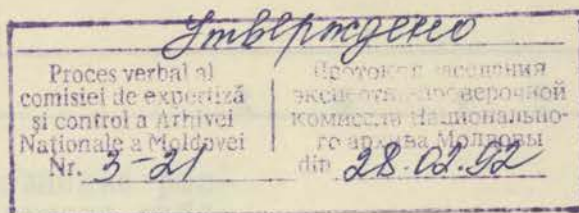 Утверждено
Proces verbal al
comisiei de expertiză
și control a Arhivei
Naționale a Moldovei
Nr. 3-21
Протокол заседания
экспертно-проверочной
комиссии Национально-
го архива Молдовы
din 28.02.92